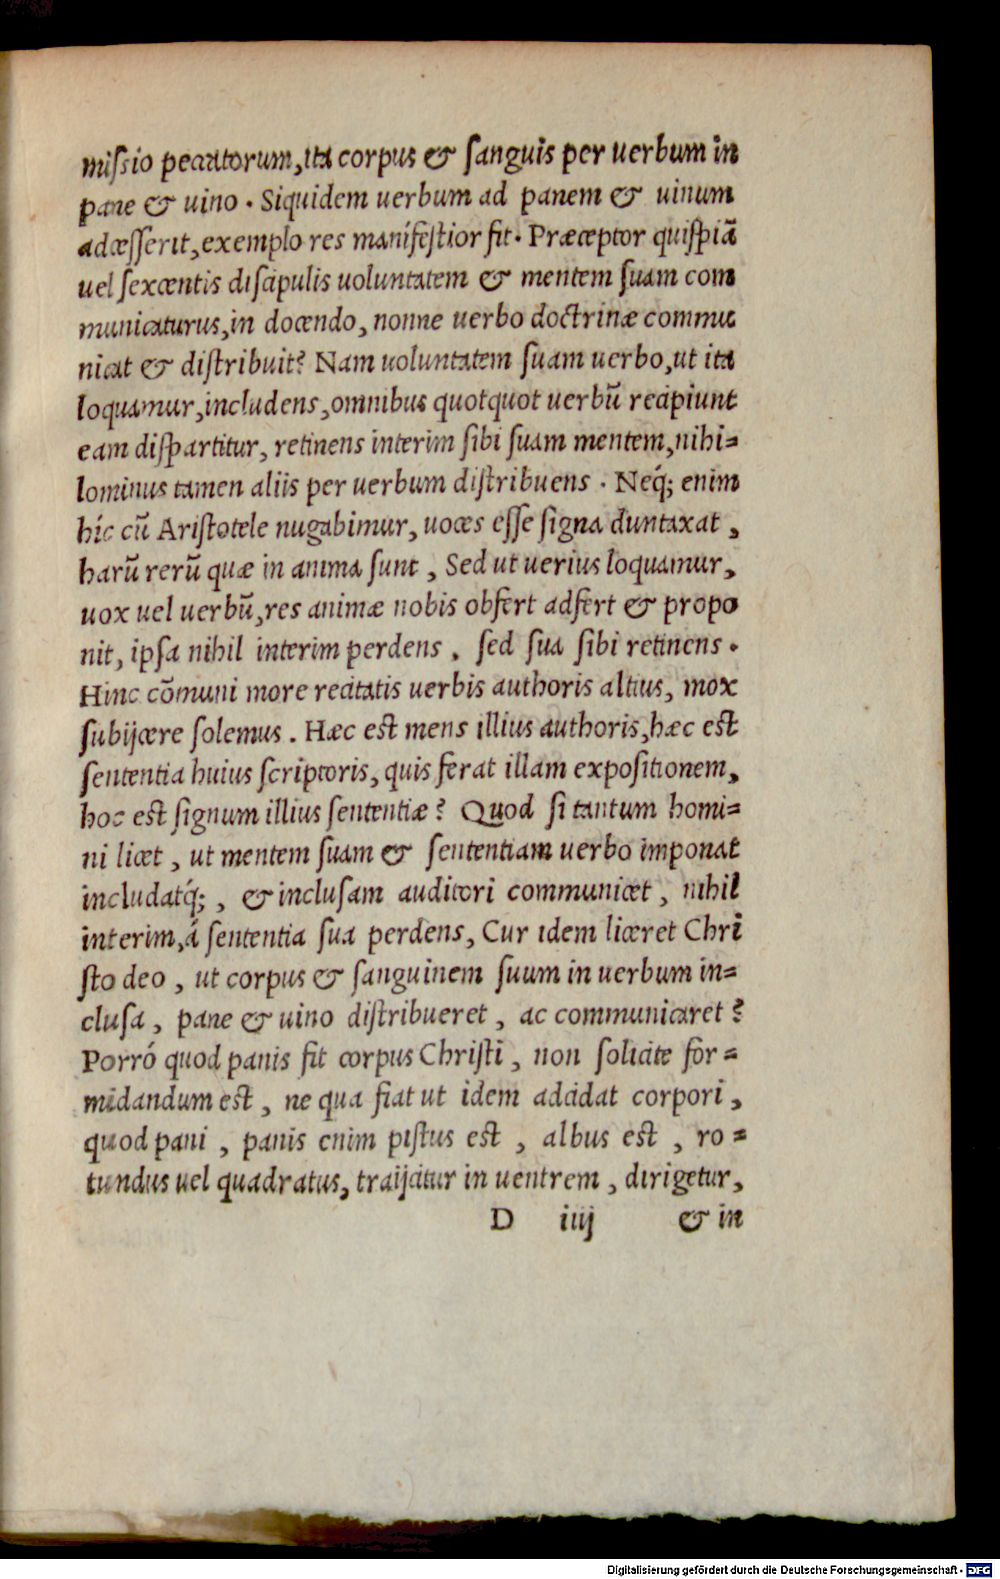 miſsio peccatorum, ita corpus & ſanguis per uerbum in
pane & uino . Siquidem uerbum ad panem & uinum
adceſſerit, exemplo res manifeſtior fit. Præceptor quiſpiã
uel ſexcentis diſcipulis uoluntatem & mentem ſuam com
municaturus, in docendo, nonne uerbo doctrinæ commu
nicat & diſtribuit? Nam uoluntatem ſuam uerbo, ut ita
loquamur, includens, omnibus quotquot uerbũ recipiunt
eam diſpartitur, retinens interim ſibi ſuam mentem, nihi=
lominus tamen aliis per uerbum diſtribuens . Neq́; enim
híc cũ Ariſtotele nugabimur, uoces eſſe ſigna duntaxat ,
harũ rerũ quæ in anima ſunt , Sed ut uerius loquamur,
uox uel uerbũ, res animæ nobis obfert adfert & propo
nit, ipſa nihil interim perdens , ſed ſua ſibi retinens .
Hinc cõmuni more recitatis uerbis authoris alicuius, mox
ſubijcere ſolemus . Hæc eſt mens illius authoris, hæc eſt
ſententia huius ſcriptoris, quis ferat illam expoſitionem,
hoc eſt ſignum illius ſententiæ ? Quod ſi tantum homi=
ni licet , ut mentem ſuam & ſententiam uerbo imponat
includatq́; , & incluſam auditori communicet , nihil
interim, á ſententia ſua perdens, Cur idem liceret Chri
ſto deo , ut corpus & ſanguinem ſuum in uerbum in=
cluſa , pane & uino diſtribueret , ac communicaret ?
Porró quod panis fit corpus Chriſti , non ſolicite for=
midandum eſt , ne qua fiat ut idem accidat corpori ,
quod pani , panis enim piſtus eſt , albus eſt , ro=
tundus uel quadratus, traijcitur in uentrem , dirigetur,
D iiij & in
Digitalisierung gefördert durch die Deutsche Forschungsgemeinschaft - DFG